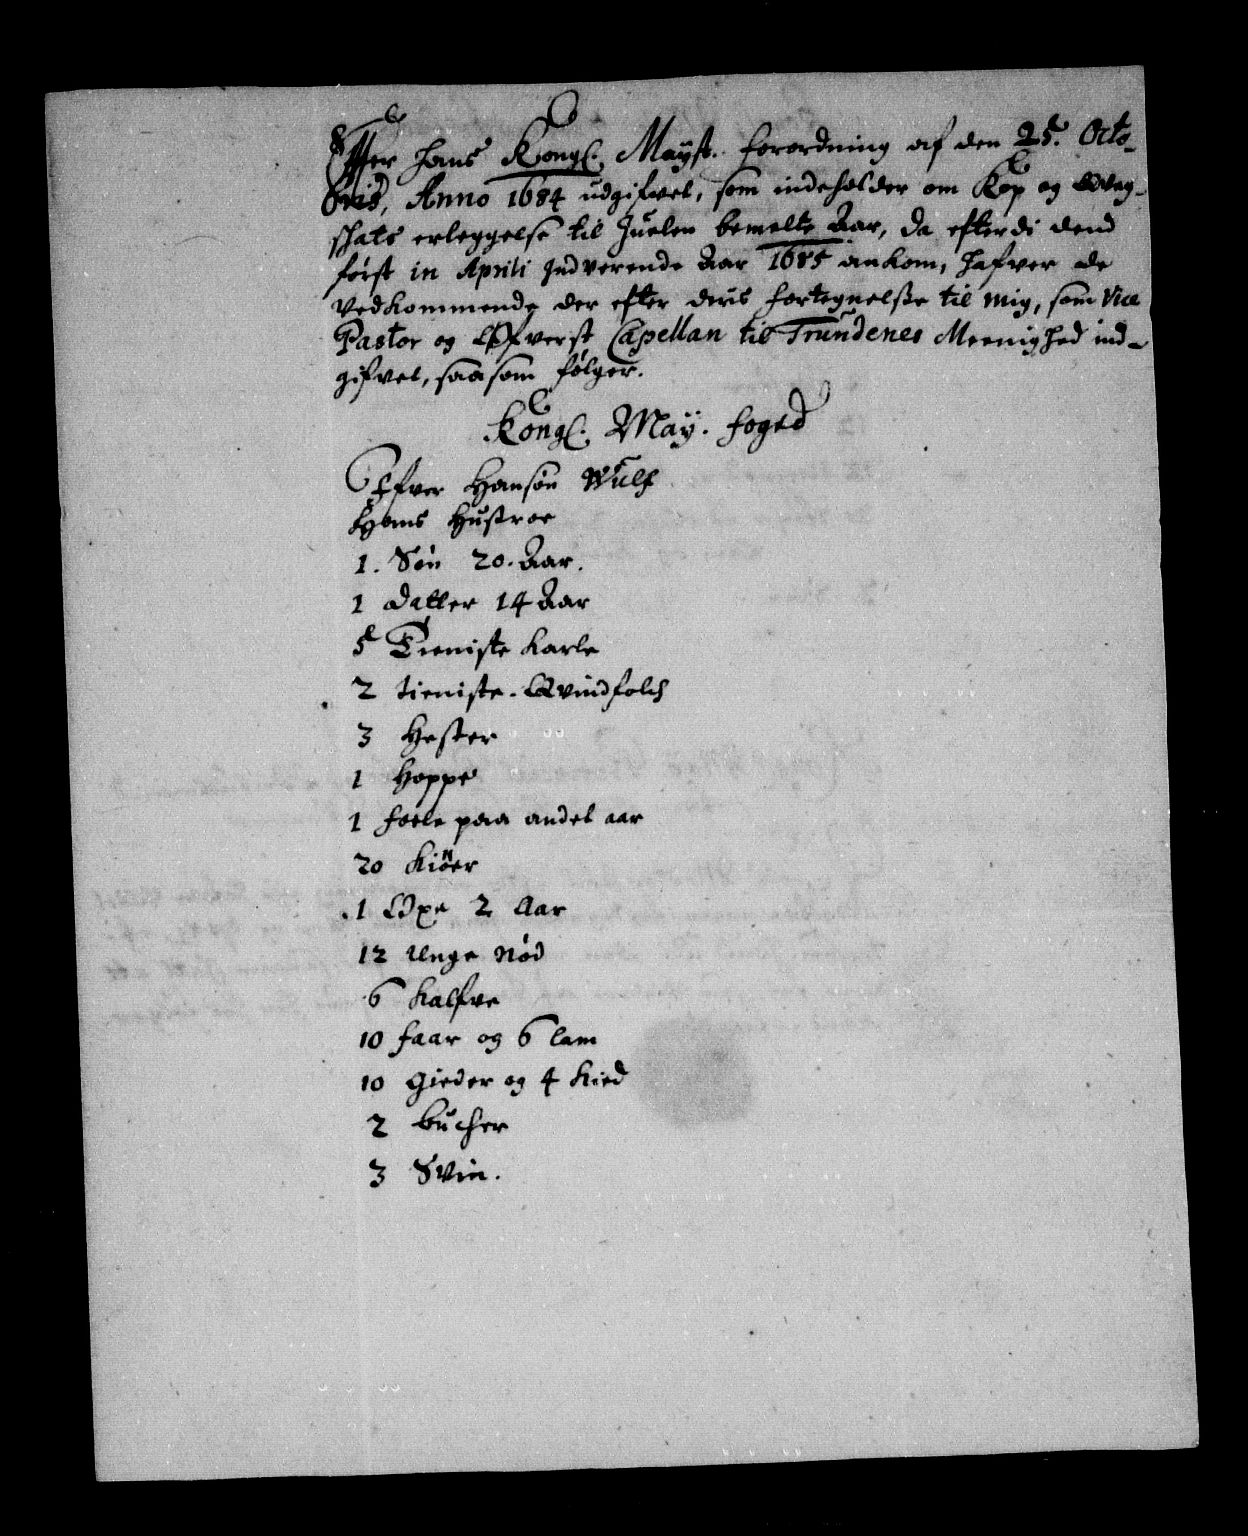 Effter hans Kongl. Mayst. forordning af den 25. Octo-
bris, Anno 1684 udgifvet, som indeholder om Kop og Qveg-
skats erleggelse til Juelen bemelte Aar, da efterdi dend
først in Aprili Indverende Aar 1685 ankom, hafver de
vedkommende der efter deris fortegnelsse til mig, som Vice
Pastor og Øfverst Capellan til Trundenes Meenighed ind-
gifvet, saasom følger.
Kongl. May. foged
Efver Hansøn Wulf
Hans Hustroe
1. Søn 20. Aar.
1 Datter 14 Aar
5 Tieniste Karle
2 tieniste-Qvindfolch
3 Hester
1 Hoppe
1 foele paa andet aar
20 Kiöer
1 Oxe 2 Aar
12 Unge Nød
6 Kalfve
10 faar og 6 lam
10 Gieder og 4 Kied
2 bucher
3 Svin.